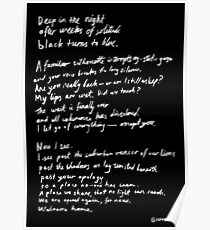 Deep in the night
after weeks of solitude
black turns to blue.
A familiar silhouette interrupts my static gaze
and your voice breaks the long silence.
Are you really back — or am I still asleep?
My lips are wet. Did we touch?
The wait is finally over
and all unknowns has dissolved.
I let go of everything — except you.
Now I see.
I see past the suburban veneer of our lives
past the shadows we lay twisted beneath
past your apology
to a place no-one has seen.
A place we share, that no light can reach.
We are equal again, for now.
Welcome home.